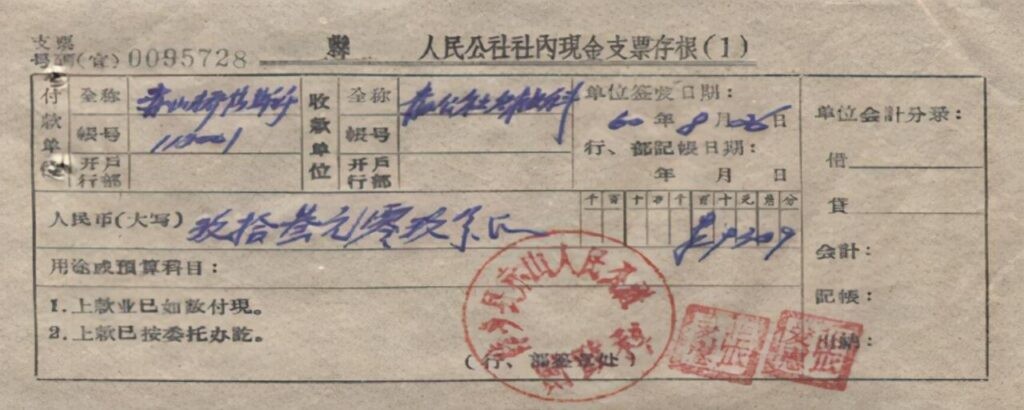 支票
号码(官)0095728 縣 人民公社社內現金支票存根(1)
付款单位 全称
帳号 113001
开戶行部
收款单位 全称
帳号
开戶行部
单位签发日期：
60年8月26日
行、部記帳日期：
年 月 日
单位会計分录：
借
貸
会計：
記帳：
出納：
人民币(大写) 玖拾叁元零玖分正
千百十万千百十元角分
9309
用途或預算科目：
1.上款业已如数付現。
2.上款已按委托办訖。
(行、部签章处)